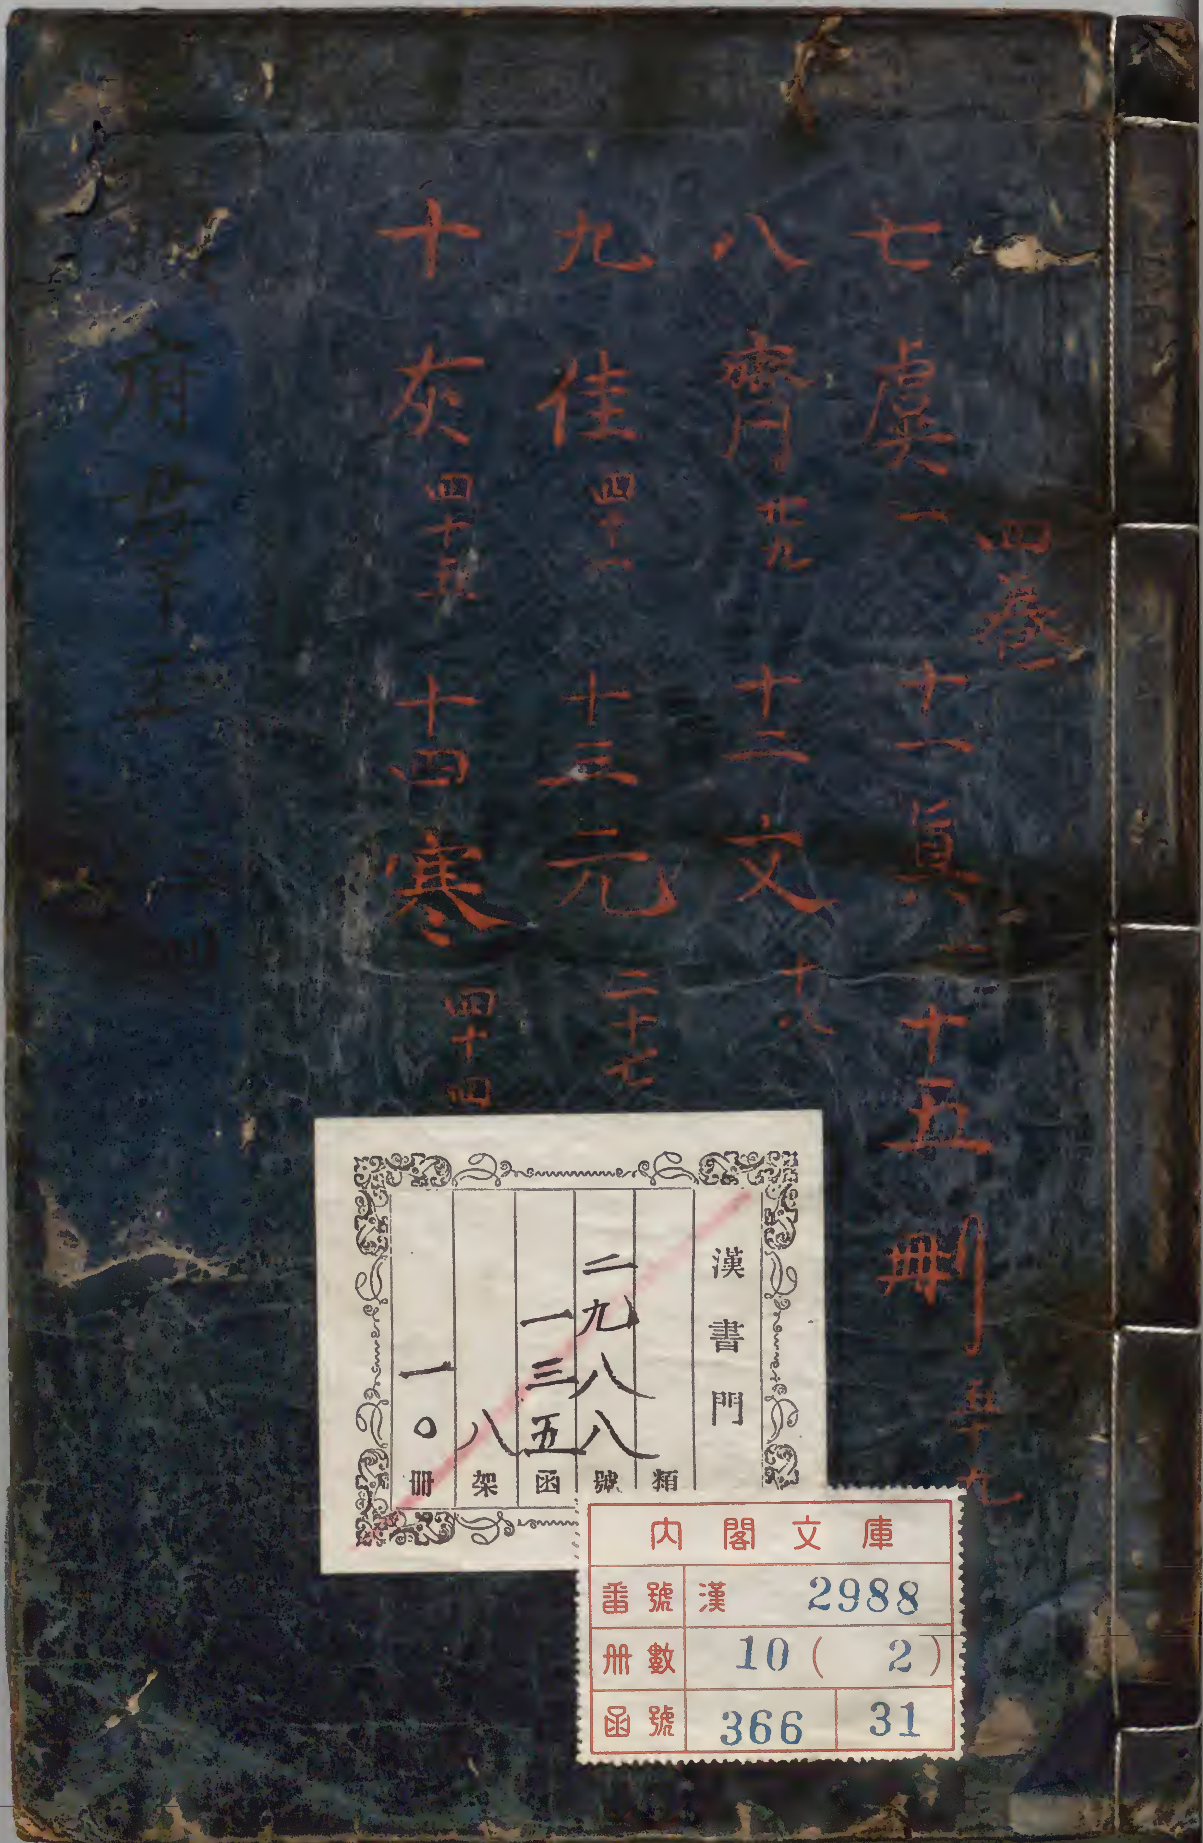 四卷
七虞一 十一眞六 十五刪五十九
八齊廿九 十二文十八
九佳四十一 十三元二十七
十灰四十五 十四寒四十四
府
漢書門
類
二九八八號
一三五函
八架
一〇冊
內閣文庫
番號 漢 2988
冊數 10(2)
函號 366 31